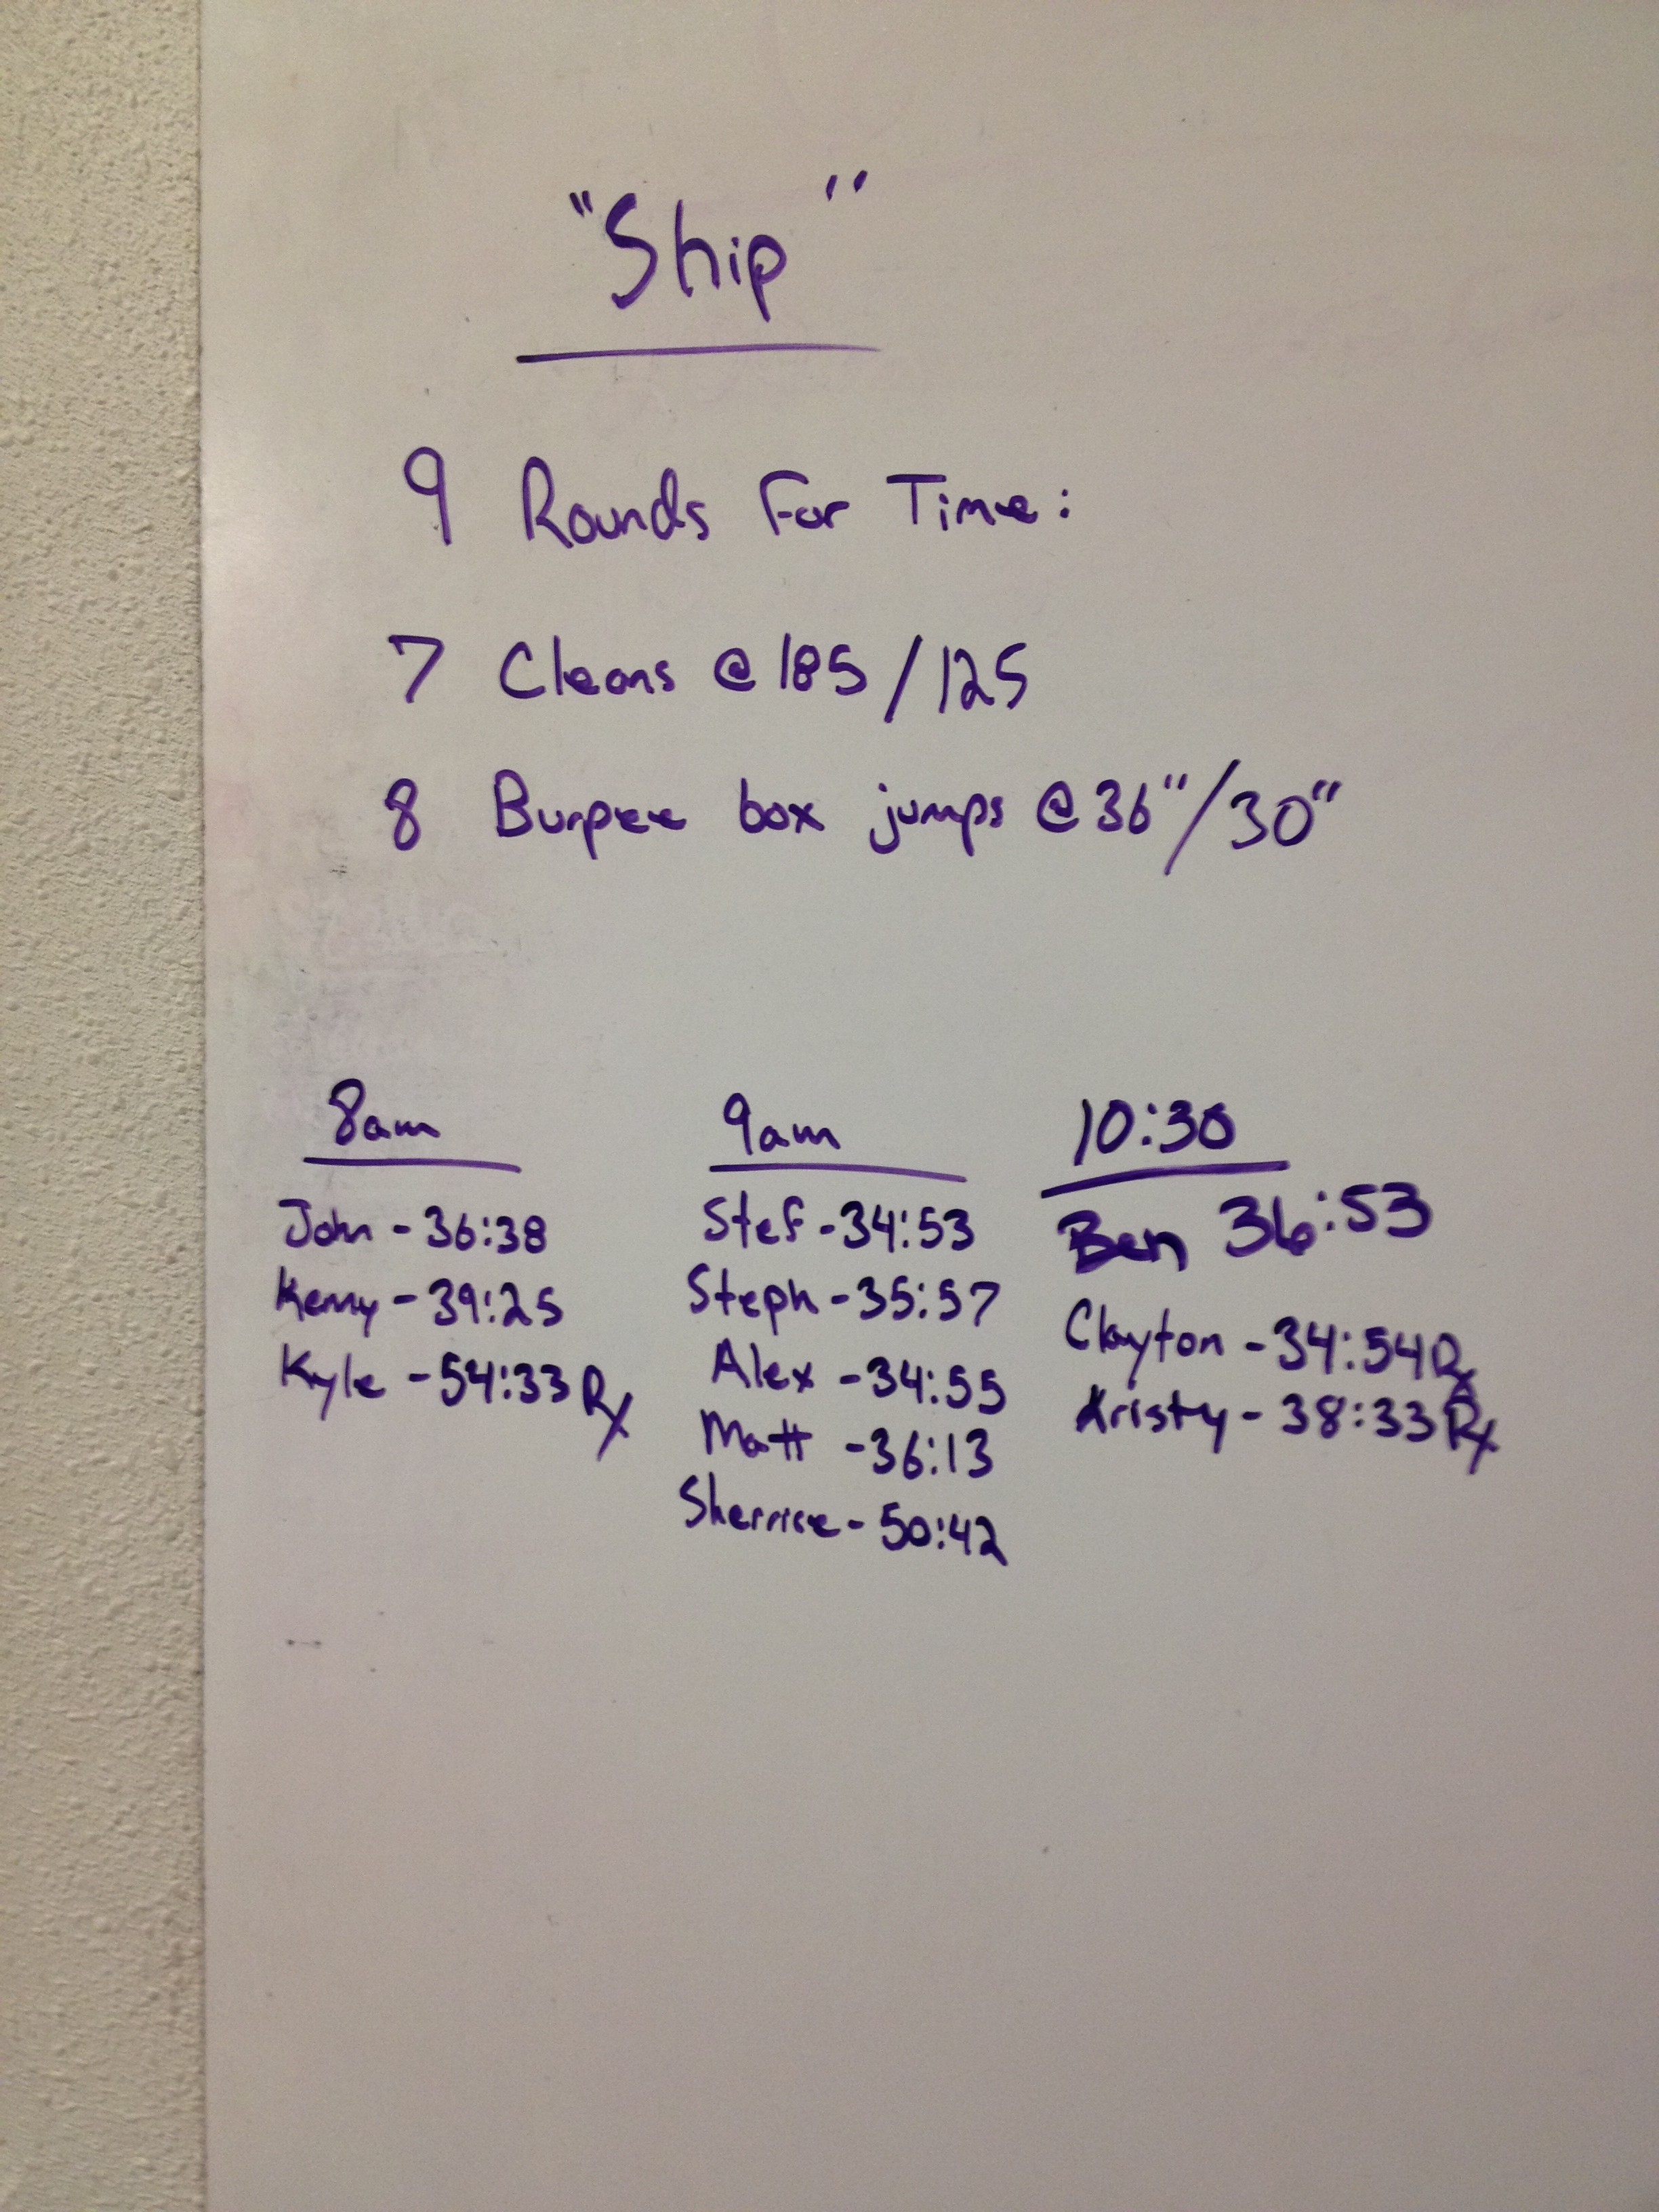 "Ship"
9 Rounds For Time:
7 Cleans @ 185/125
8 Burpee box jumps @ 36"/30"
8am
John - 36:38
Kenny - 39:25
Kyle - 54:33 Rx
9am
Stef - 34:53
Steph - 35:57
Alex - 34:55
Matt - 36:13
Sherrise - 50:42
10:30
Ben 36:53
Clayton - 34:54 Rx
Kristy - 38:33 Rx